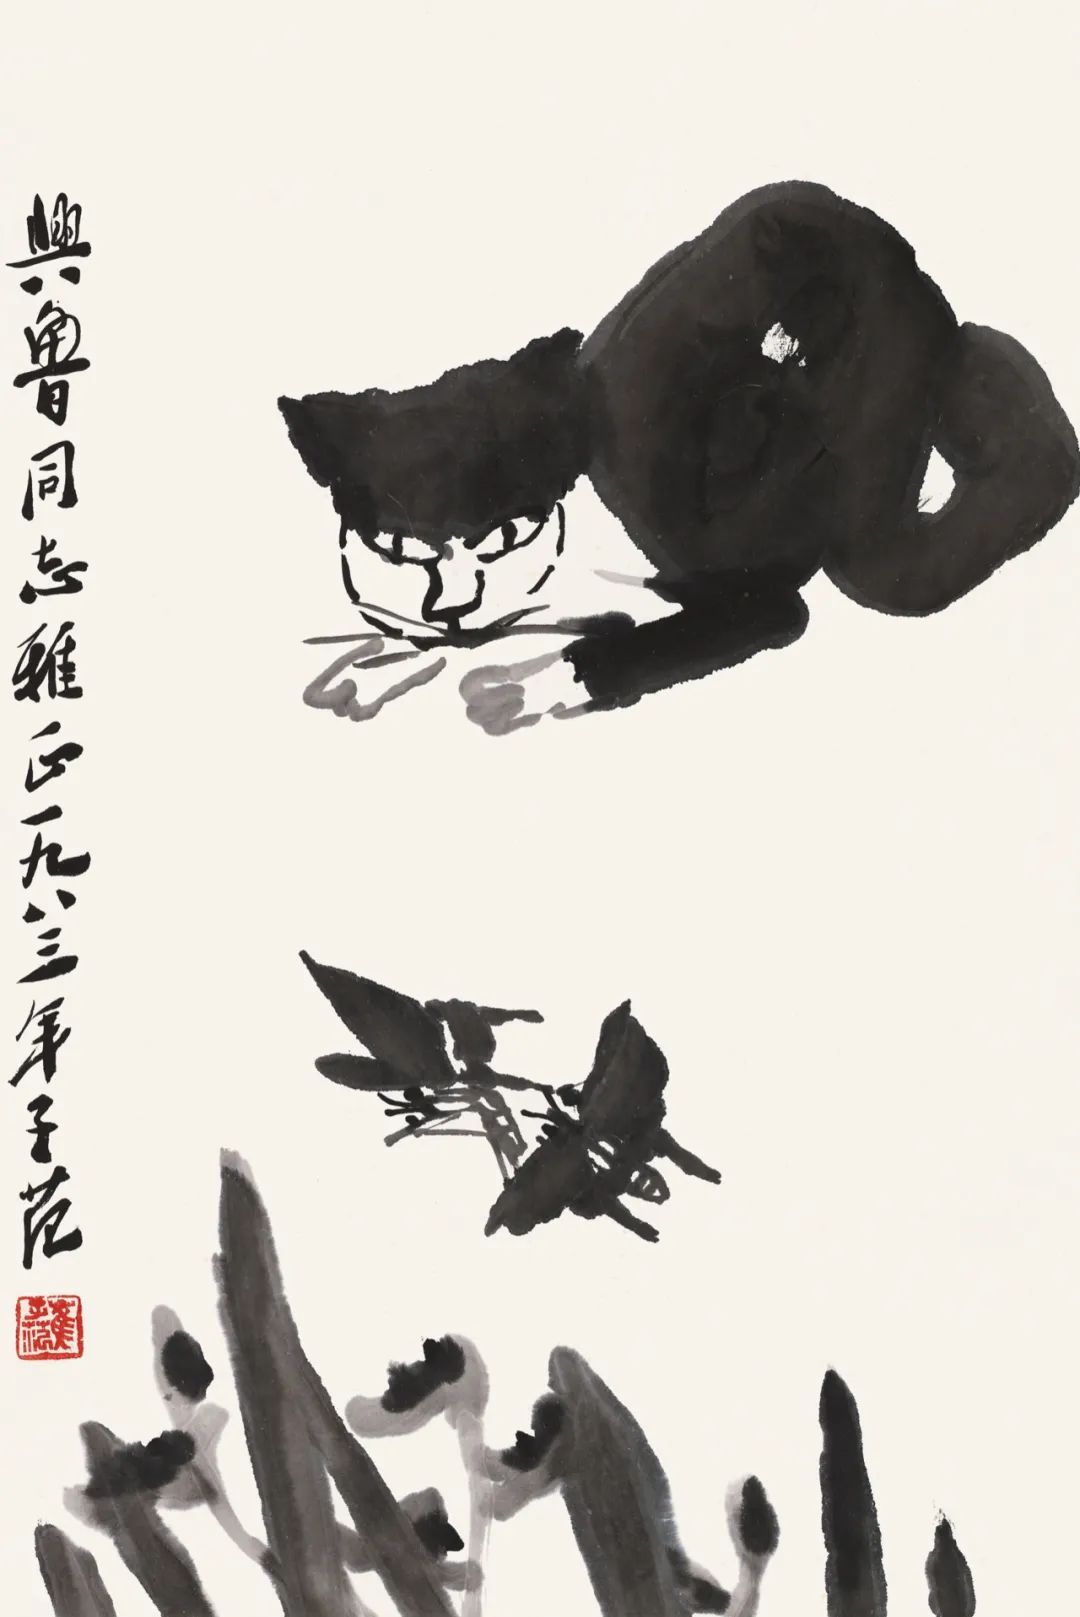 興魯同志雅正一九八三年子范